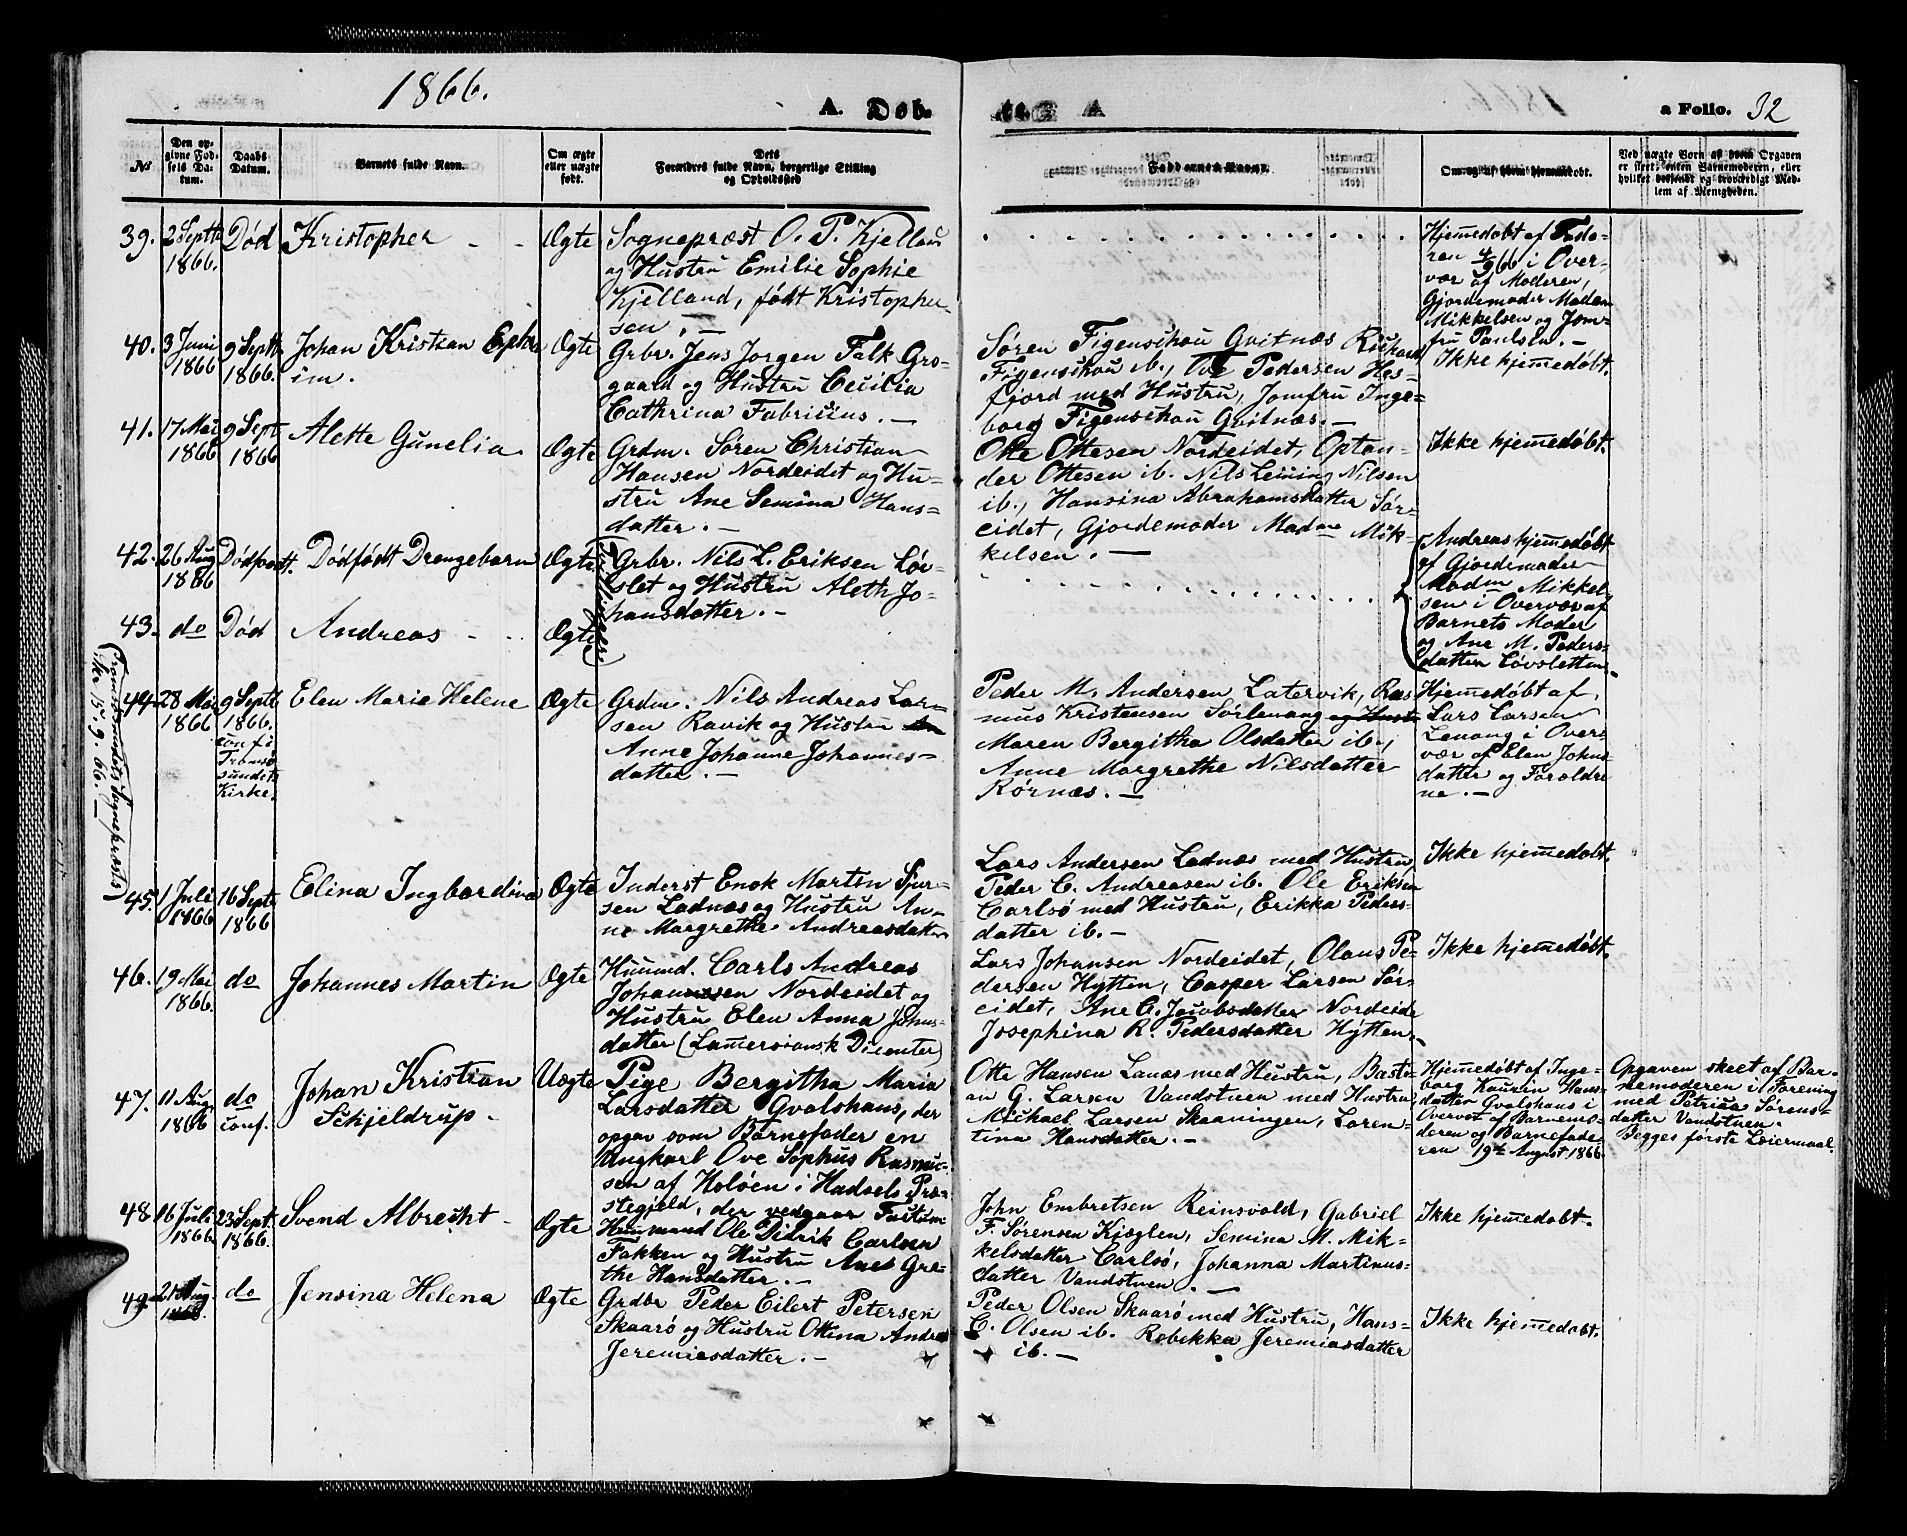 1866.
A. Døb.
A
a Folio. 32
No
Den opgivne Fødsels Datum.
Daabs Datum.
Barnets fulde Navn.
Om ægte eller uægte født.
Dets Forældres fulde Navn, borgerlige Stilling og Opholdssted
Faddernes Navne.
Om og af hvem hjemmedøbt.
Ved uægte Børn af hvem Opgaven er skeet, enten Barnemoderen, eller hvilket bekjendt og troværdigt Medlem af Menigheden.
39. 2 Septb 1866. Død Kristopher Ægte
Sognepræst O. P. Kjelland
og Hustru Emilie Sophie
Kjelland, født Kristopher-
sen. —
Hjemedøbt af Fade-
ren 4/9 66 i Over-
vær af Moderen,
Gjordemoder Madam
Mikkelsen og Jom-
fru Paulsen. —
40. 3 Juni 1866 9 Septb 1866. Johan Kristian Ephra-
im. Ægte
Grbr. Jens Jørgen Falk Gro-
gaard og Hustru Cecilia
Cathrina Fabricius. —
Søren Figenschou Gvitnæs Rickard
Figenschou ib., Ove Pedersen Hes-
fjord med Hustru, Jomfru Inge-
borg Figenschou Gvitnæs. —
Ikke hjemedøbt.
41. 17 Mai 1866 9 Sept 1866 Alette Gunelia Ægte
Grdm. Søren Christian
Hansen Nordeidet og Hu-
stru Ane Semina Hans-
datter. —
Otte Ottesen Nordeidet, Optan-
der Ottesen ib. Nils Leming Nilsen
ib., Hansina Abrahamsdatter Sør-
eidet, Gjordemoder Madme Mik-
kelsen. —
Ikke hjemedøbt.
42. 26 Aug 1866 Dødfødt. Dødfødt Drengebarn Ægte
Grbr. Nils L. Eriksen Løv-
slet og Hustru Aleth Jo-
hansdatter. —
43. do Død Andreas Ægte
Andreas hjemedøbt
af Gjordemoder
Madm Mikkel-
sen i Overvær af
Barnets Moder
og Ane M. Peders-
datter Løvsletten.
44. 28 Mai 1866 9 Septb 1866.
conf. i
Tromsø
sundets
Kirke.
Elen Marie Helene Ægte
Grdm. Nils Andreas Lar-
sen Ravik og Hustru
Anne Johanne Johannes-
datter. —
Peder M. Andersen Latervik, Ras-
mus Kristensen Sørlenang og Hust
Maren Bergitha Olsdatter ib.,
Anne Margrethe Nilsdatter
Rørnæs. —
Hjemedøbt af
Lars Larsen
Lenang i Over-
vær af Elen Johns-
datter og Forældre
ne. —
45. 1 Juli 1866 16 Septb 1866 Elina Ingbardina Ægte
Inderst Enok Martin Sjur-
sen Ladnæs og Hustru An-
ne Margrethe Andreasdatter
Lars Andersen Ladnæs med Hustru,
Peder C. Andreasen ib. Ole Eriksen
Carlsø med Hustru, Erikka Peders-
datter ib. —
Ikke hjemedøbt.
46. 19 Mai 1866. do Johannes Martin Ægte
Huusmd. Carls Andreas
Johannesen Nordeidet og
Hustru Elen Anna Johns-
datter (Lamersiansk Dicenter)
Lars Johansen Nordeidet, Olaus Pe-
dersen Hytten, Casper Larsen Sør-
eidet, Ane C. Jacobsdatter Nordeidet
Josephina R. Pedersdatter Hytten.
Ikke hjemedøbt.
47. 11 Aug. 1866 do conf. Johan Kristian
Schjeldrup. Uægte
Pige Bergitha Maria
Larsdatter Gvalshaus, der
opgav som Barnefader en
Ungkarl Ove Sophus Rasmus-
sen af Holøen i Hadsels Præ-
stegjeld, der vedgaar
Otte Hansen Lanæs med Hustru, Basti-
an G. Larsen Vandstuen med Hustru,
Mickael Larsen Skaaningen, Loren-
tina Hansdatter. —
Hjemedøbt af Inge-
borg Kaurin Hans-
datter Gvalshaus i
Overvær af Barnemo-
deren og Barnefade-
ren 19de August 1866.
Opgaven skeet af Bar-
nemoderen i Forening
med Petrica Sørens-
datter Vandstuen.
Begges første Leiermaal.
48. 16 Juli 1866. 23 Sept. 1866. Svend Albrecht Ægte
Husmand Ole Didrik Carlsen
Fakken og Hustru Anes Gre-
the Hansdatter. —
John Embretsen Reinsvold, Gabriel
F. Sørensen Kjøglen, Semina M. Mik-
kelsdatter Carlsø, Johanna Martinus-
datter Vandstuen. —
Ikke hjemedøbt.
49. 21 Aug. 1866. do Jensina Helena Ægte
Grdbr Peder Eilert Petersen
Skaarø og Hustru Ottina Andrea
Jeremiesdatter. —
Peder Olsen Skaarø med Hustru, Hans
C. Olsen ib. Rebekka Jeremiasdatter
ib. —
Ikke hjemedøbt.